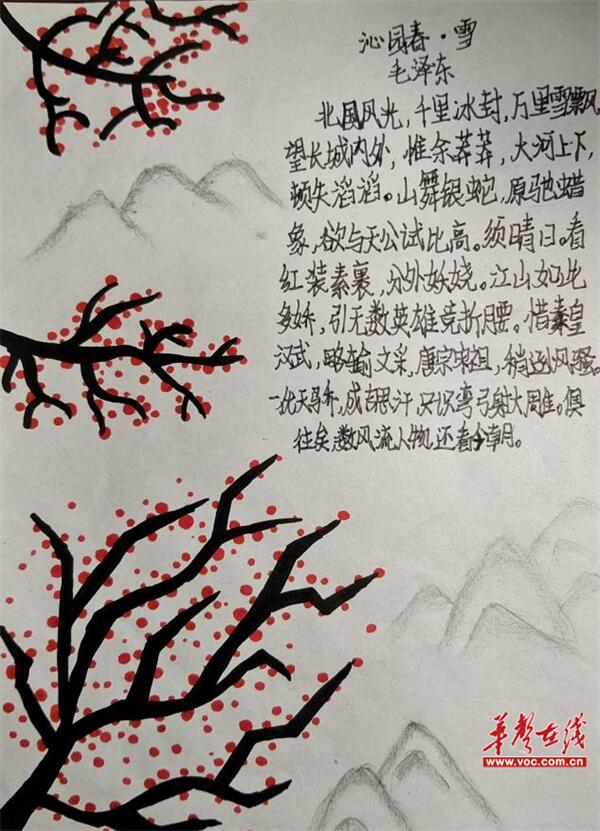 沁园春·雪
毛泽东
北国风光，千里冰封，万里雪飘
望长城内外，惟余莽莽，大河上下，
顿失滔滔。山舞银蛇，原驰蜡
象，欲与天公试比高。须晴日。看
红装素裹，分外妖娆。江山如此
多娇，引无数英雄竞折腰。惜秦皇
汉武，略输文采，唐宗宋祖，稍逊风骚。
一代天骄，成吉思汗，只识弯弓射大雕。俱
往矣，数风流人物，还看今朝。
华声在线
www.voc.com.cn